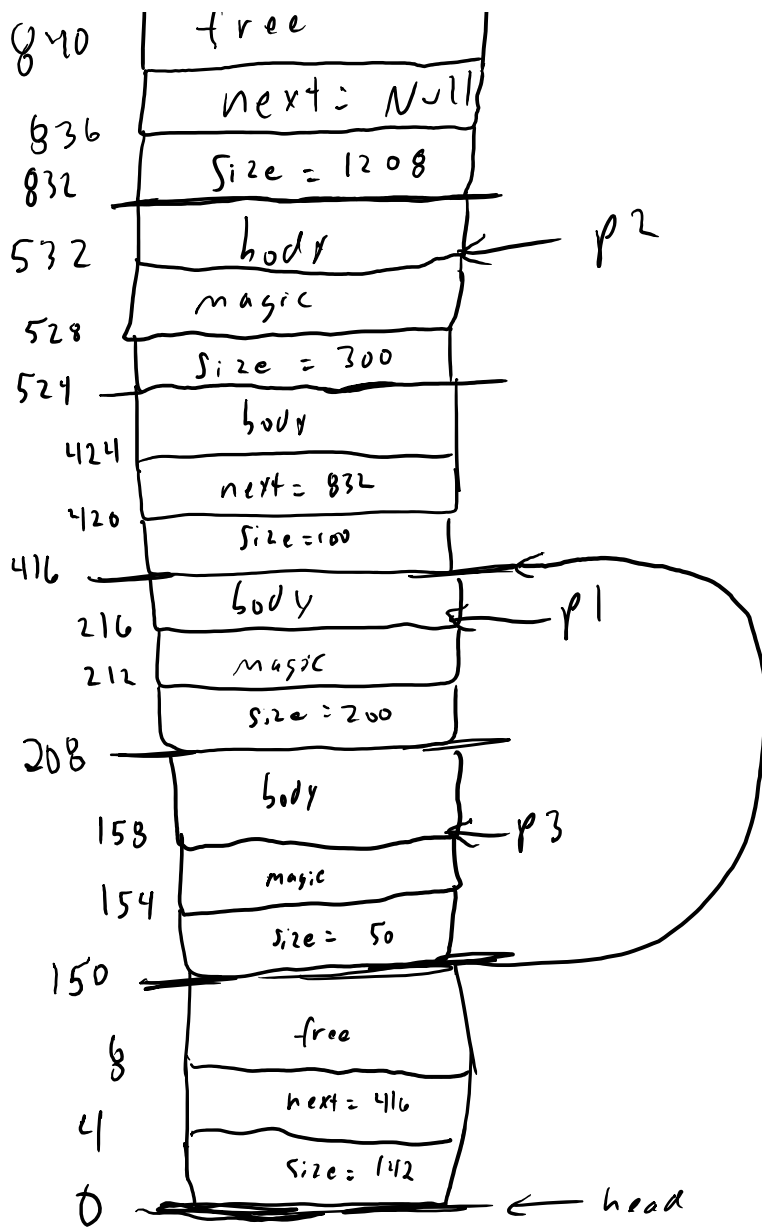 840 free
next = Null
836
size = 1208
832
body
532
p2
magic
528
size = 300
524
body
424
next = 832
420
size=100
416
body
216
p1
magic
212
size = 200
208
body
158
p3
magic
154
size = 50
150
free
8
next = 416
4
size = 142
0
head